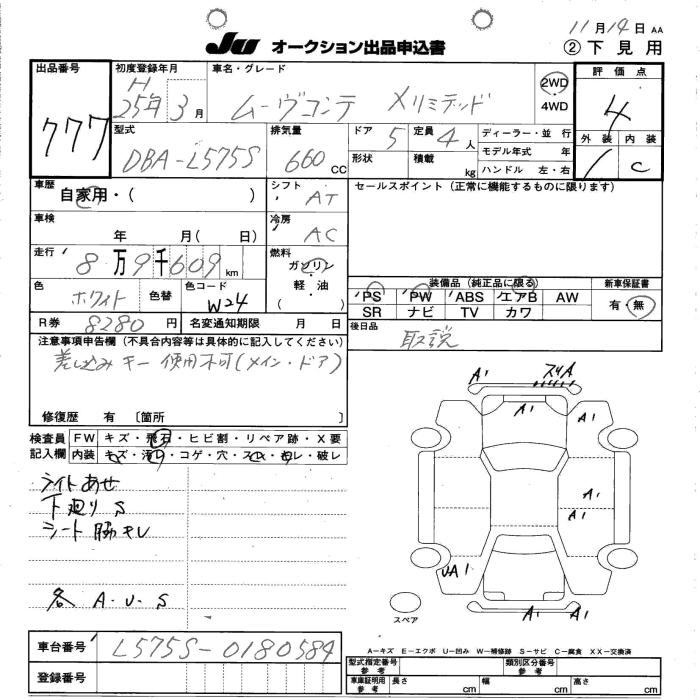 11月14日 AA
JU オークション出品申込書
② 下見用
出品番号 777
初度登録年月 H25年3月
車名・グレード ムーヴコンテ Xリミテッド
2WD ・ 4WD
評価点 4
外装 1 内装 C
型式 DBA-L575S
排気量 660 CC
ドア 5 定員 4人
形状 積載 kg
ディーラー・並行
モデル年式 年
ハンドル 左・右
車歴 自家用・( )
シフト AT
セールスポイント(正常に機能するものに限ります)
車検 年 月( 日)
冷房 AC
走行 8万9千609 km
燃料 ガソリン・軽油 ( )
色 ホワイト 色替
色コード W24
装備品(純正品に限る)
PS PW ABS エアB AW
SR ナビ TV カワ
新車保証書 有・無
R券 8280円 名変通知期限 月 日
後日品 取説
注意事項申告欄(不具合内容等は具体的に記入してください)
差し込みキー使用不可(メイン・ドア)
修復歴 有 〔箇所 〕
検査員記入欄
FW キズ・飛石・ヒビ割・リペア跡・X要
内装 キズ・汚れ・コゲ・穴・スレ・キレ・破レ
ライトあせ
下廻り S
シート脇キレ
各 A・U・S
A1 スリA
A1 A1
A1
A1
UA1
A1 A1
スペア
A-キズ E-エクボ U-凹み W-補修跡 S-サビ C-腐食 XX-交換済
車台番号 L575S-0180584
登録番号
型式指定番号 参考 類別区分番号 参考
車庫証明用 参考 長さ cm 幅 cm 高さ cm